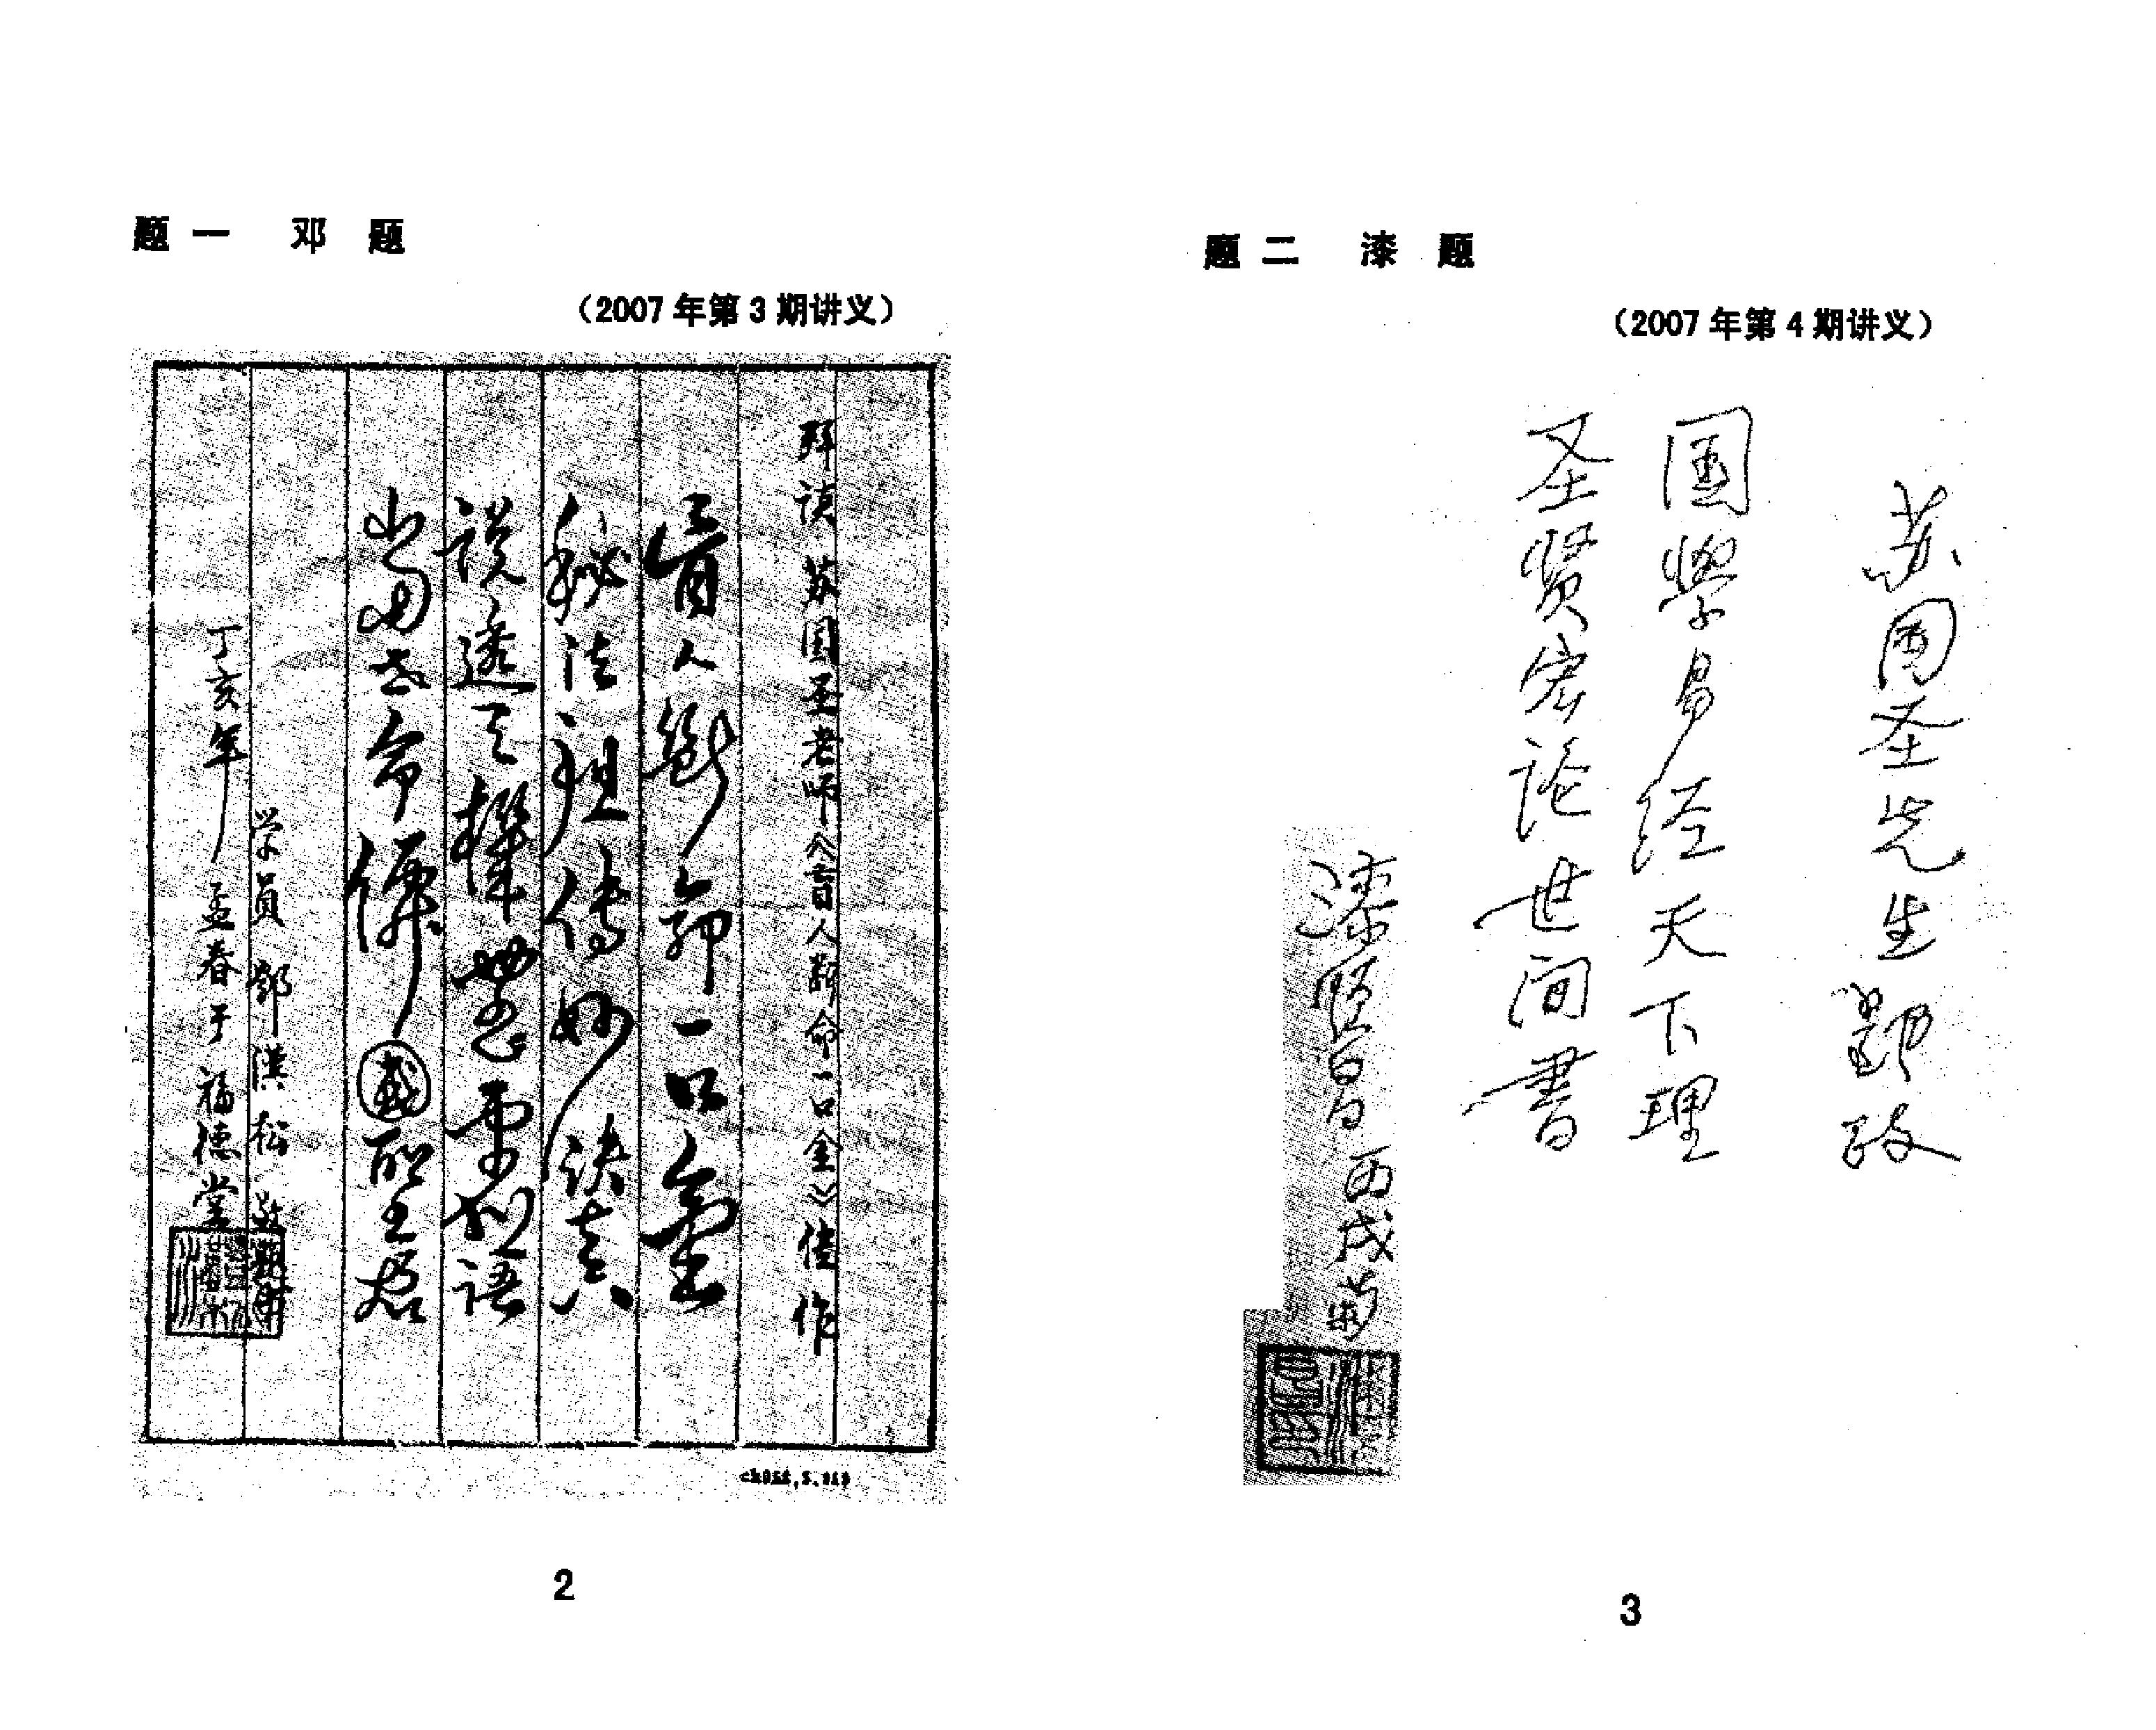 题一 邓题
（2007年第3期讲义）
拜读苏国圣老师《盲人断命一口金》佳作
盲人断命一口金
秘法祖传妙诀真
说透天机无虚语
当世命仙国聖君
学员鄧洪松
丁亥年孟春于福德堂
2
题二 漆题
（2007年第4期讲义）
苏国圣先生郢政
国學易经天下理
圣贤宏论世间書
漆贤昌
丙戌
3